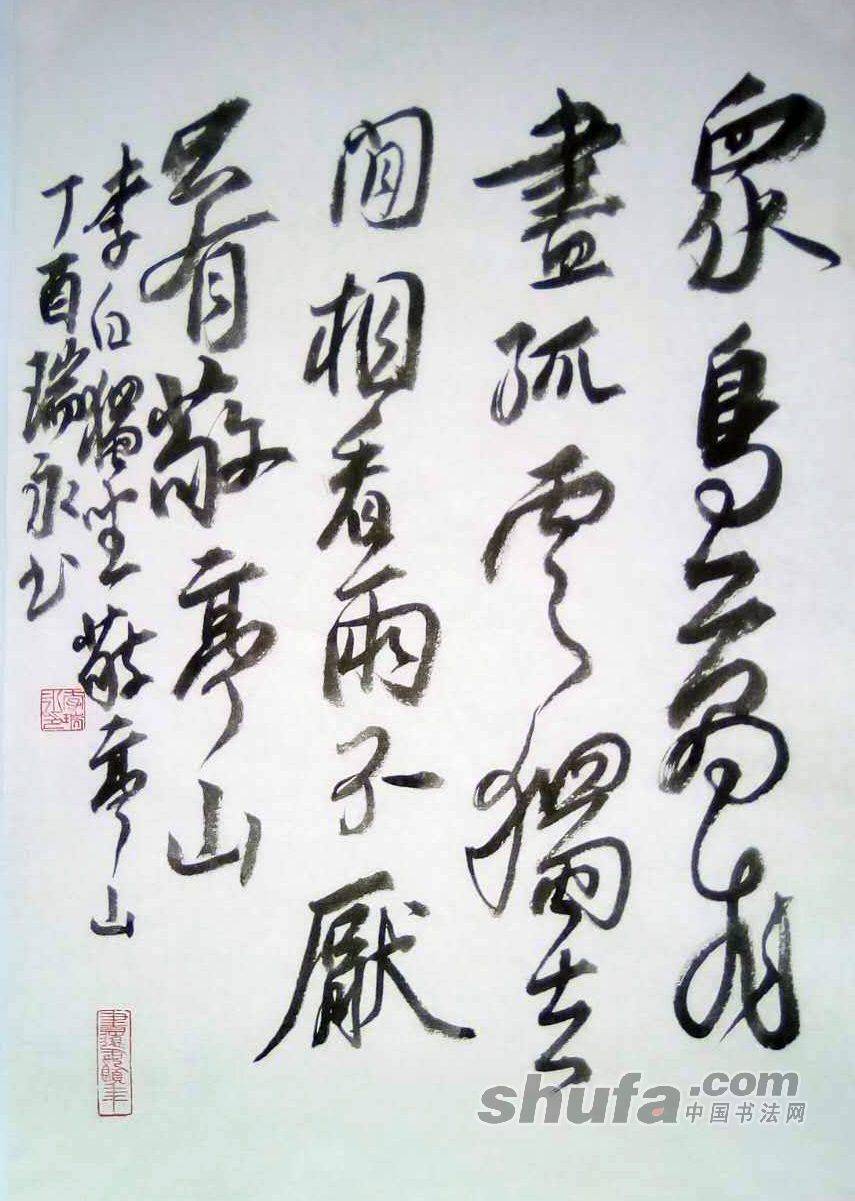 眾鳥高飛
盡孤雲獨去
閒相看兩不厭
只有敬亭山
李白獨坐敬亭山
丁酉瑞永书
shufa.com
中国书法网